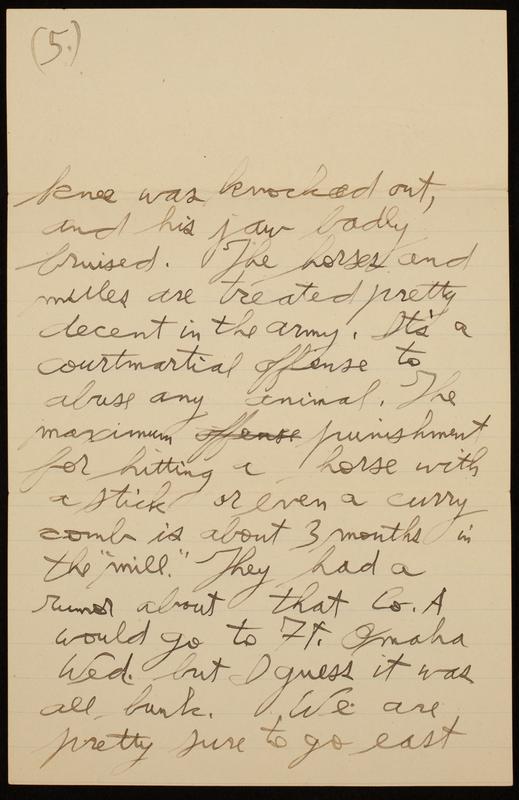 (5.)
knee was knocked out,
and his jaw badly
bruised. The horses and
mules are treated pretty
decent in the army. It's a
courtmartial offense to
abuse any animal. The
maximum offense punishment
for hitting a horse with
a stick or even a curry
comb is about 3 months in
the "mill." They had a
rumor about that Co. A
would go to Ft. Omaha
Wed. but I guess it was
all bunk. We are
pretty sure to go east